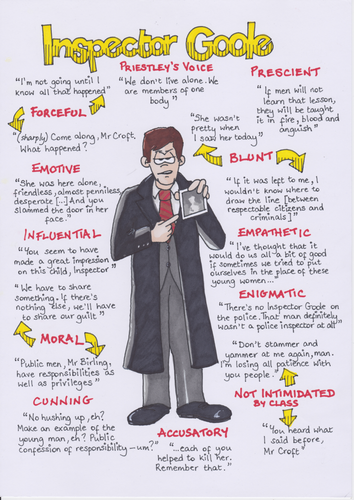 Inspector Goole
PRIESTLEY'S VOICE
"We don't live alone. We
are members of one
body"
"I'm not going until I
know all that happened"
FORCEFUL
"(sharply) Come along, Mr Croft.
What happened?
EMOTIVE
"She was here alone,
friendless, almost penniless,
desperate [...] And you
slammed the door in her
face."
INFLUENTIAL
"You seem to have
made a great impression
on this child, Inspector"
"We have to share
something. If there's
nothing else, we'll have
to share our guilt"
MORAL
"Public men, Mr Birling,
have responsibilities as
well as privileges"
CUNNING
"No hushing up, eh?
Make an example of the
young man, eh? Public
confession of responsibility - um?"
ACCUSATORY
"...each of you
helped to kill her.
Remember that."
PRESCIENT
"If men will not
learn that lesson,
they will be taught
it in fire, blood and
anguish"
"She wasn't
pretty when
I saw her today"
BLUNT
"If it was left to me, I
wouldn't know where to
draw the line [between
respectable citizens and
criminals]"
EMPATHETIC
"I've thought that it
would do us all a bit of good
if sometimes we tried to put
ourselves in the place of these
young women..."
ENIGMATIC
"There's no Inspector Goole on
the police. That man definitely
wasn't a police inspector at all"
"Don't stammer and
yammer at me again, man.
I'm losing all patience with
you people."
NOT INTIMIDATED
BY CLASS
"You heard what
I said before,
Mr Croft"